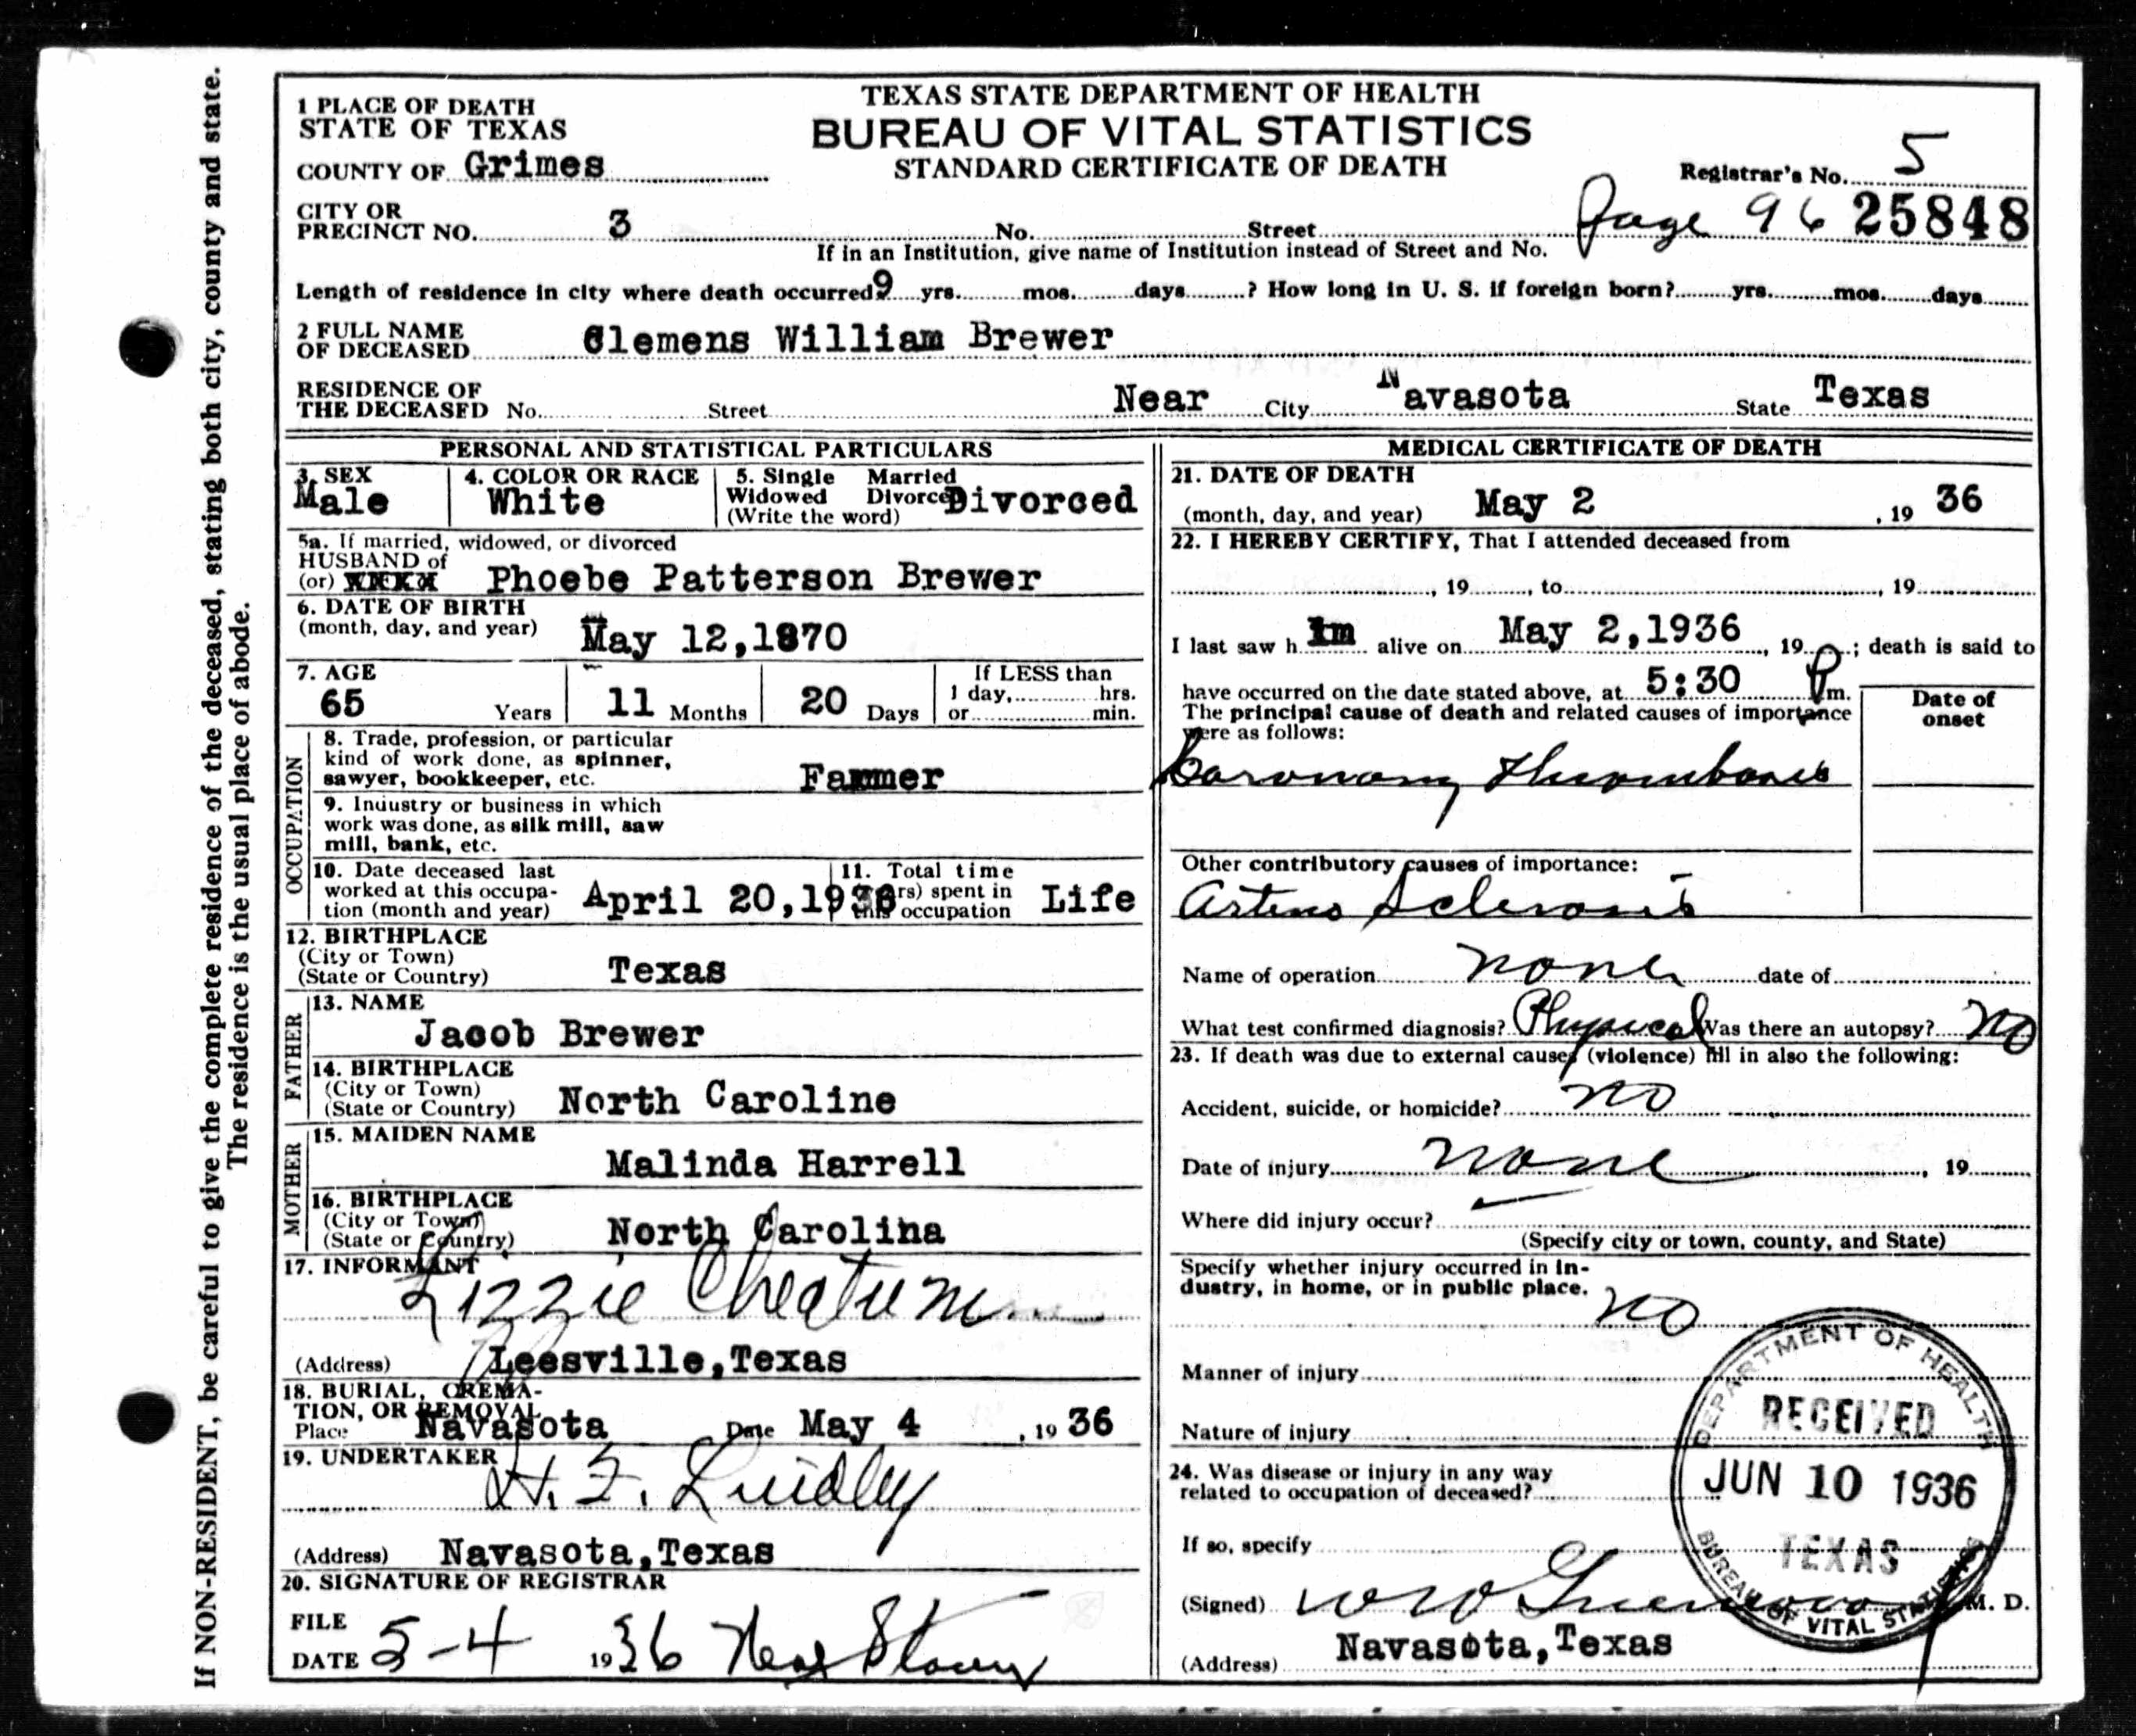 If NON-RESIDENT, be careful to give the complete residence of the deceased, stating both city, county and state.
The residence is the usual place of abode.
1 PLACE OF DEATH
STATE OF TEXAS
COUNTY OF Grimes
TEXAS STATE DEPARTMENT OF HEALTH
BUREAU OF VITAL STATISTICS
STANDARD CERTIFICATE OF DEATH
Registrar's No. 5
CITY OR
PRECINCT NO. 3 No. Street
Page 96 25848
If in an Institution, give name of Institution instead of Street and No.
Length of residence in city where death occurred 9 yrs. mos. days ? How long in U. S. if foreign born? yrs. mos. days
2 FULL NAME
OF DECEASED Clemens William Brewer
RESIDENCE OF
THE DECEASED No. Street Near City Navasota State Texas
PERSONAL AND STATISTICAL PARTICULARS
3. SEX
Male
4. COLOR OR RACE
White
5. Single Married
Widowed Divorced Divorced
(Write the word)
5a. If married, widowed, or divorced
HUSBAND of
(or) XXXX Phoebe Patterson Brewer
6. DATE OF BIRTH
(month, day, and year) May 12,1870
7. AGE
65 Years 11 Months 20 Days
If LESS than
1 day, hrs.
or min.
OCCUPATION
8. Trade, profession, or particular
kind of work done, as spinner,
sawyer, bookkeeper, etc. Farmer
9. Industry or business in which
work was done, as silk mill, saw
mill, bank, etc.
10. Date deceased last
worked at this occupa-
tion (month and year) April 20,1936
11. Total time
(yrs) spent in
this occupation Life
12. BIRTHPLACE
(City or Town)
(State or Country) Texas
FATHER
13. NAME
Jacob Brewer
14. BIRTHPLACE
(City or Town)
(State or Country) North Caroline
MOTHER
15. MAIDEN NAME
Malinda Harrell
16. BIRTHPLACE
(City or Town)
(State or Country) North Carolina
17. INFORMANT
Lizzie Cheatum
(Address) Leesville,Texas
18. BURIAL, CREMA-
TION, OR REMOVAL
Place Navasota Date May 4 , 19 36
19. UNDERTAKER
H. F. Lindley
(Address) Navasota,Texas
20. SIGNATURE OF REGISTRAR
FILE
DATE 5-4 1936
MEDICAL CERTIFICATE OF DEATH
21. DATE OF DEATH
(month, day, and year) May 2 , 19 36
22. I HEREBY CERTIFY, That I attended deceased from
, 19 , to , 19
I last saw h im alive on May 2,1936 , 19 ; death is said to
have occurred on the date stated above, at 5:30 P m.
The principal cause of death and related causes of importance
were as follows:
Date of
onset
Coronary Thrombosis
Other contributory causes of importance:
Arterio Sclerosis
Name of operation none date of
What test confirmed diagnosis? Physical Was there an autopsy? No
23. If death was due to external causes (violence) fill in also the following:
Accident, suicide, or homicide? no
Date of injury none , 19
Where did injury occur?
(Specify city or town, county, and State)
Specify whether injury occurred in in-
dustry, in home, or in public place.
no
Manner of injury
Nature of injury
24. Was disease or injury in any way
related to occupation of deceased?
If so, specify
(Signed) M. D.
(Address) Navasota,Texas
DEPARTMENT OF HEALTH
RECEIVED
JUN 10 1936
TEXAS
BUREAU OF VITAL STATISTICS